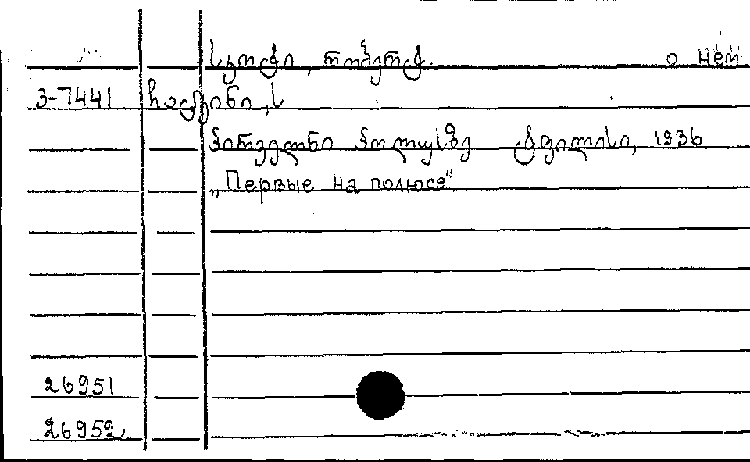 სკოტი, რობერტ. о нем
3-7441 ჩაფინი, ს
პირველნი პოლუსზე ტფილისი, 1936
„Первые на полюсе“
26951
26952